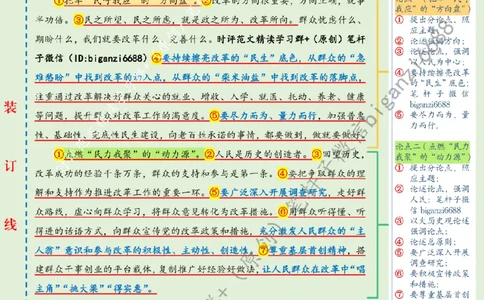 半功倍。③民之所望、民之所想，就是政之所为、改革所向。群众忧虑什么、
期盼什么，我们就要改革什么、完善什么。时评范文精读学习群+（原创）笔杆
子微信（ID:biganzi6688）④要持续擦亮改革的“民生”底色，从群众的“急
难愁盼”中找到改革的切入点，从群众的“柴米油盐”中找到改革的落脚点，
注重通过改革解决好群众关心的就业、增收、入学、就医、托幼、养老、健康
等问题，提升群众对改革工作的满意度。⑤要尽力而为、量力而行，加强普惠
性、基础性、兜底性民生建设，向着百姓承诺的事情，都要做到，做就要做好。
①点燃“民力我聚”的“动力源”。②人民是历史的创造者。③回望历史，
改革成功的经验千条万条，群众的支持和参与是第一条。④要把争取群众的理
解和支持作为推进改革工作的重要一环。⑤要广泛深入开展调查研究，走好群
众路线，虚心向群众学习，将群众意见转化为改革措施。⑥用群众听得懂、听
得进的话语方式，向群众宣传党的改革政策和措施，充分激发人民群众的“主
人翁”意识和参与改革的积极性、主动性、创造性。⑦尊重基层首创精神，搭
建群众干事创业的平台载体，复制推广好经验好做法，让人民群众在改革中“唱
主角”“挑大梁”“得实惠”。
装
订
线
我应”的“方向盘”）
① 提出分论点、照
应主题；
② 论述强调方向；
③ 论述强调工作要
以人为中心；
④ 要持续擦亮改革
的“民生”底色；
笔杆子微信
biganzi6688
⑤ 要尽力而为、量
力而行，
论点二（点燃“民力
我聚”的“动力源”）
① 提出分论点、照
应主题；
② 论述论点，强调
人民；笔杆子微信
biganzi6688
③ 以大历史观论述
强调论点；
④ 论述总原则；
⑤ 要广泛深入开展
调查研究；
⑥ 要积极宣传政策
和措施；
⑦ 要尊重基层首创